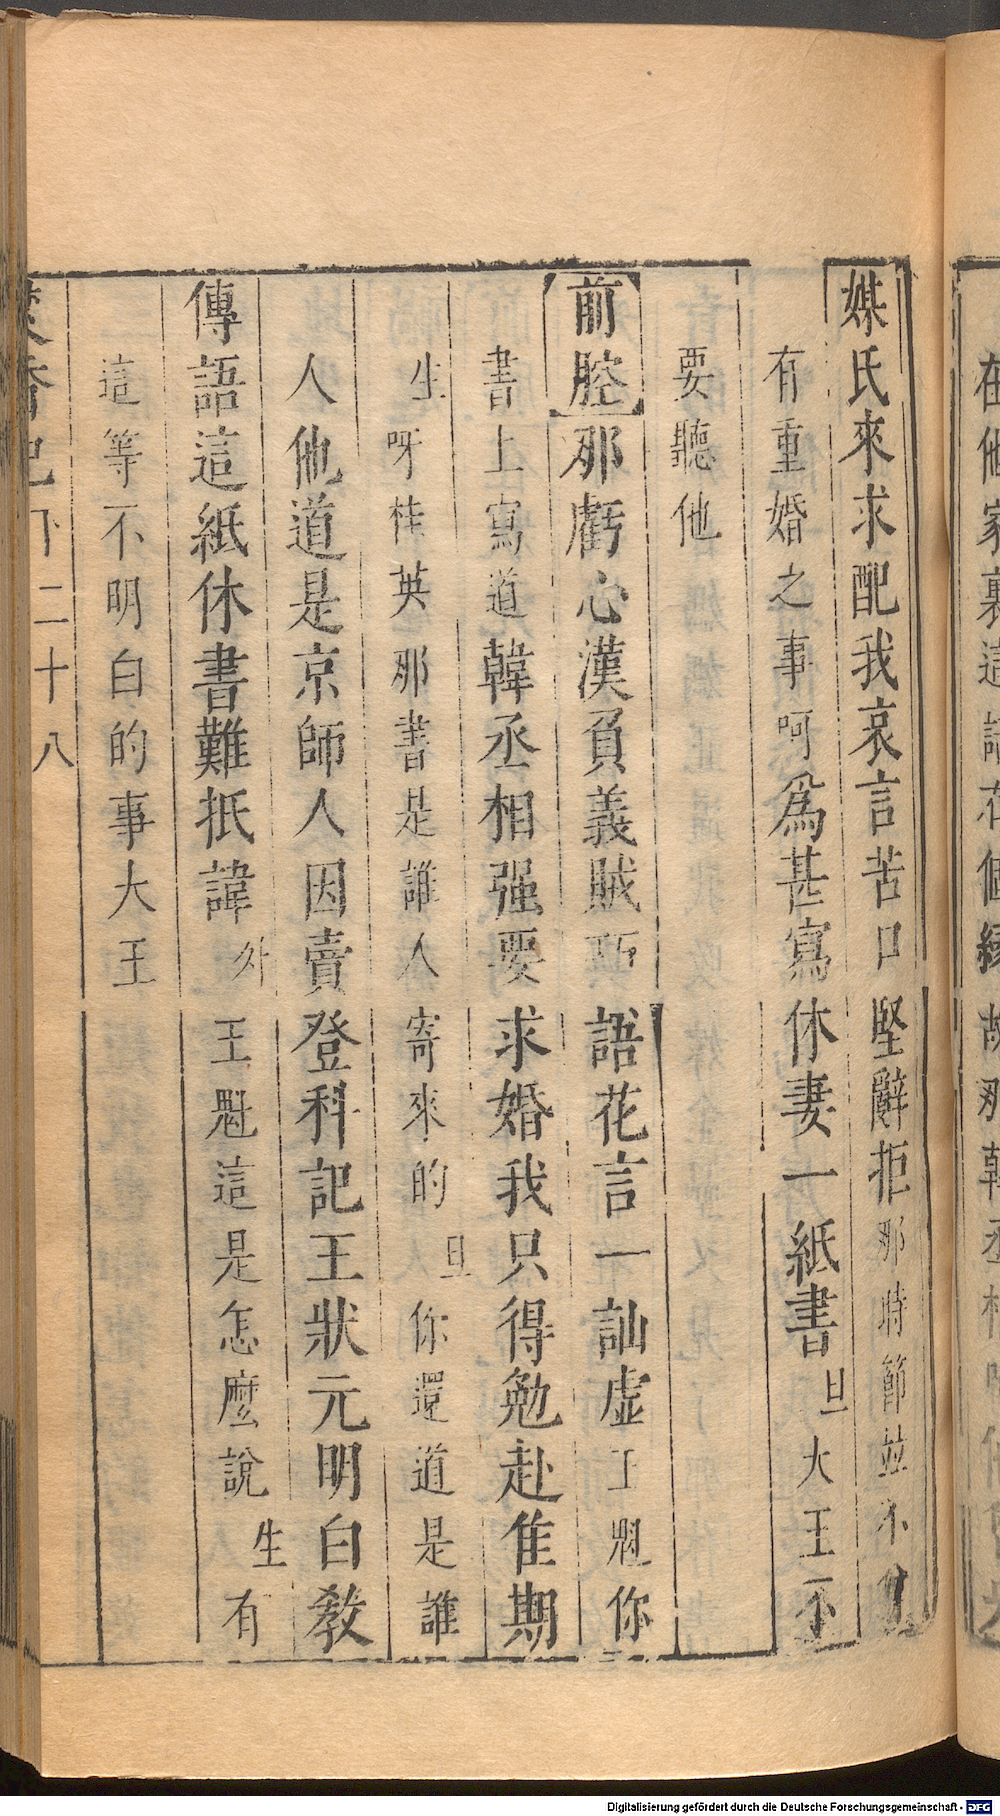 在他家裏這
媒氏來求配我哀言苦口堅辭拒那時節並不
有重婚之事呵爲甚寫休妻一紙書旦大王不
要聽他
前腔那虧心漢負義賊巧語花言一訕虛王魁你
書上寫道韓丞相强要求婚我只得勉赴佳期
生呀桂英那書是誰人寄來的旦你還道是誰
人他道是京師人因賣登科記王狀元明白教
傳語這紙休書難抵諱外王魁這是怎麼說生有
這等不明白的事大王
香記下二十八
Digitalisierung gefördert durch die Deutsche Forschungsgemeinschaft - DFG